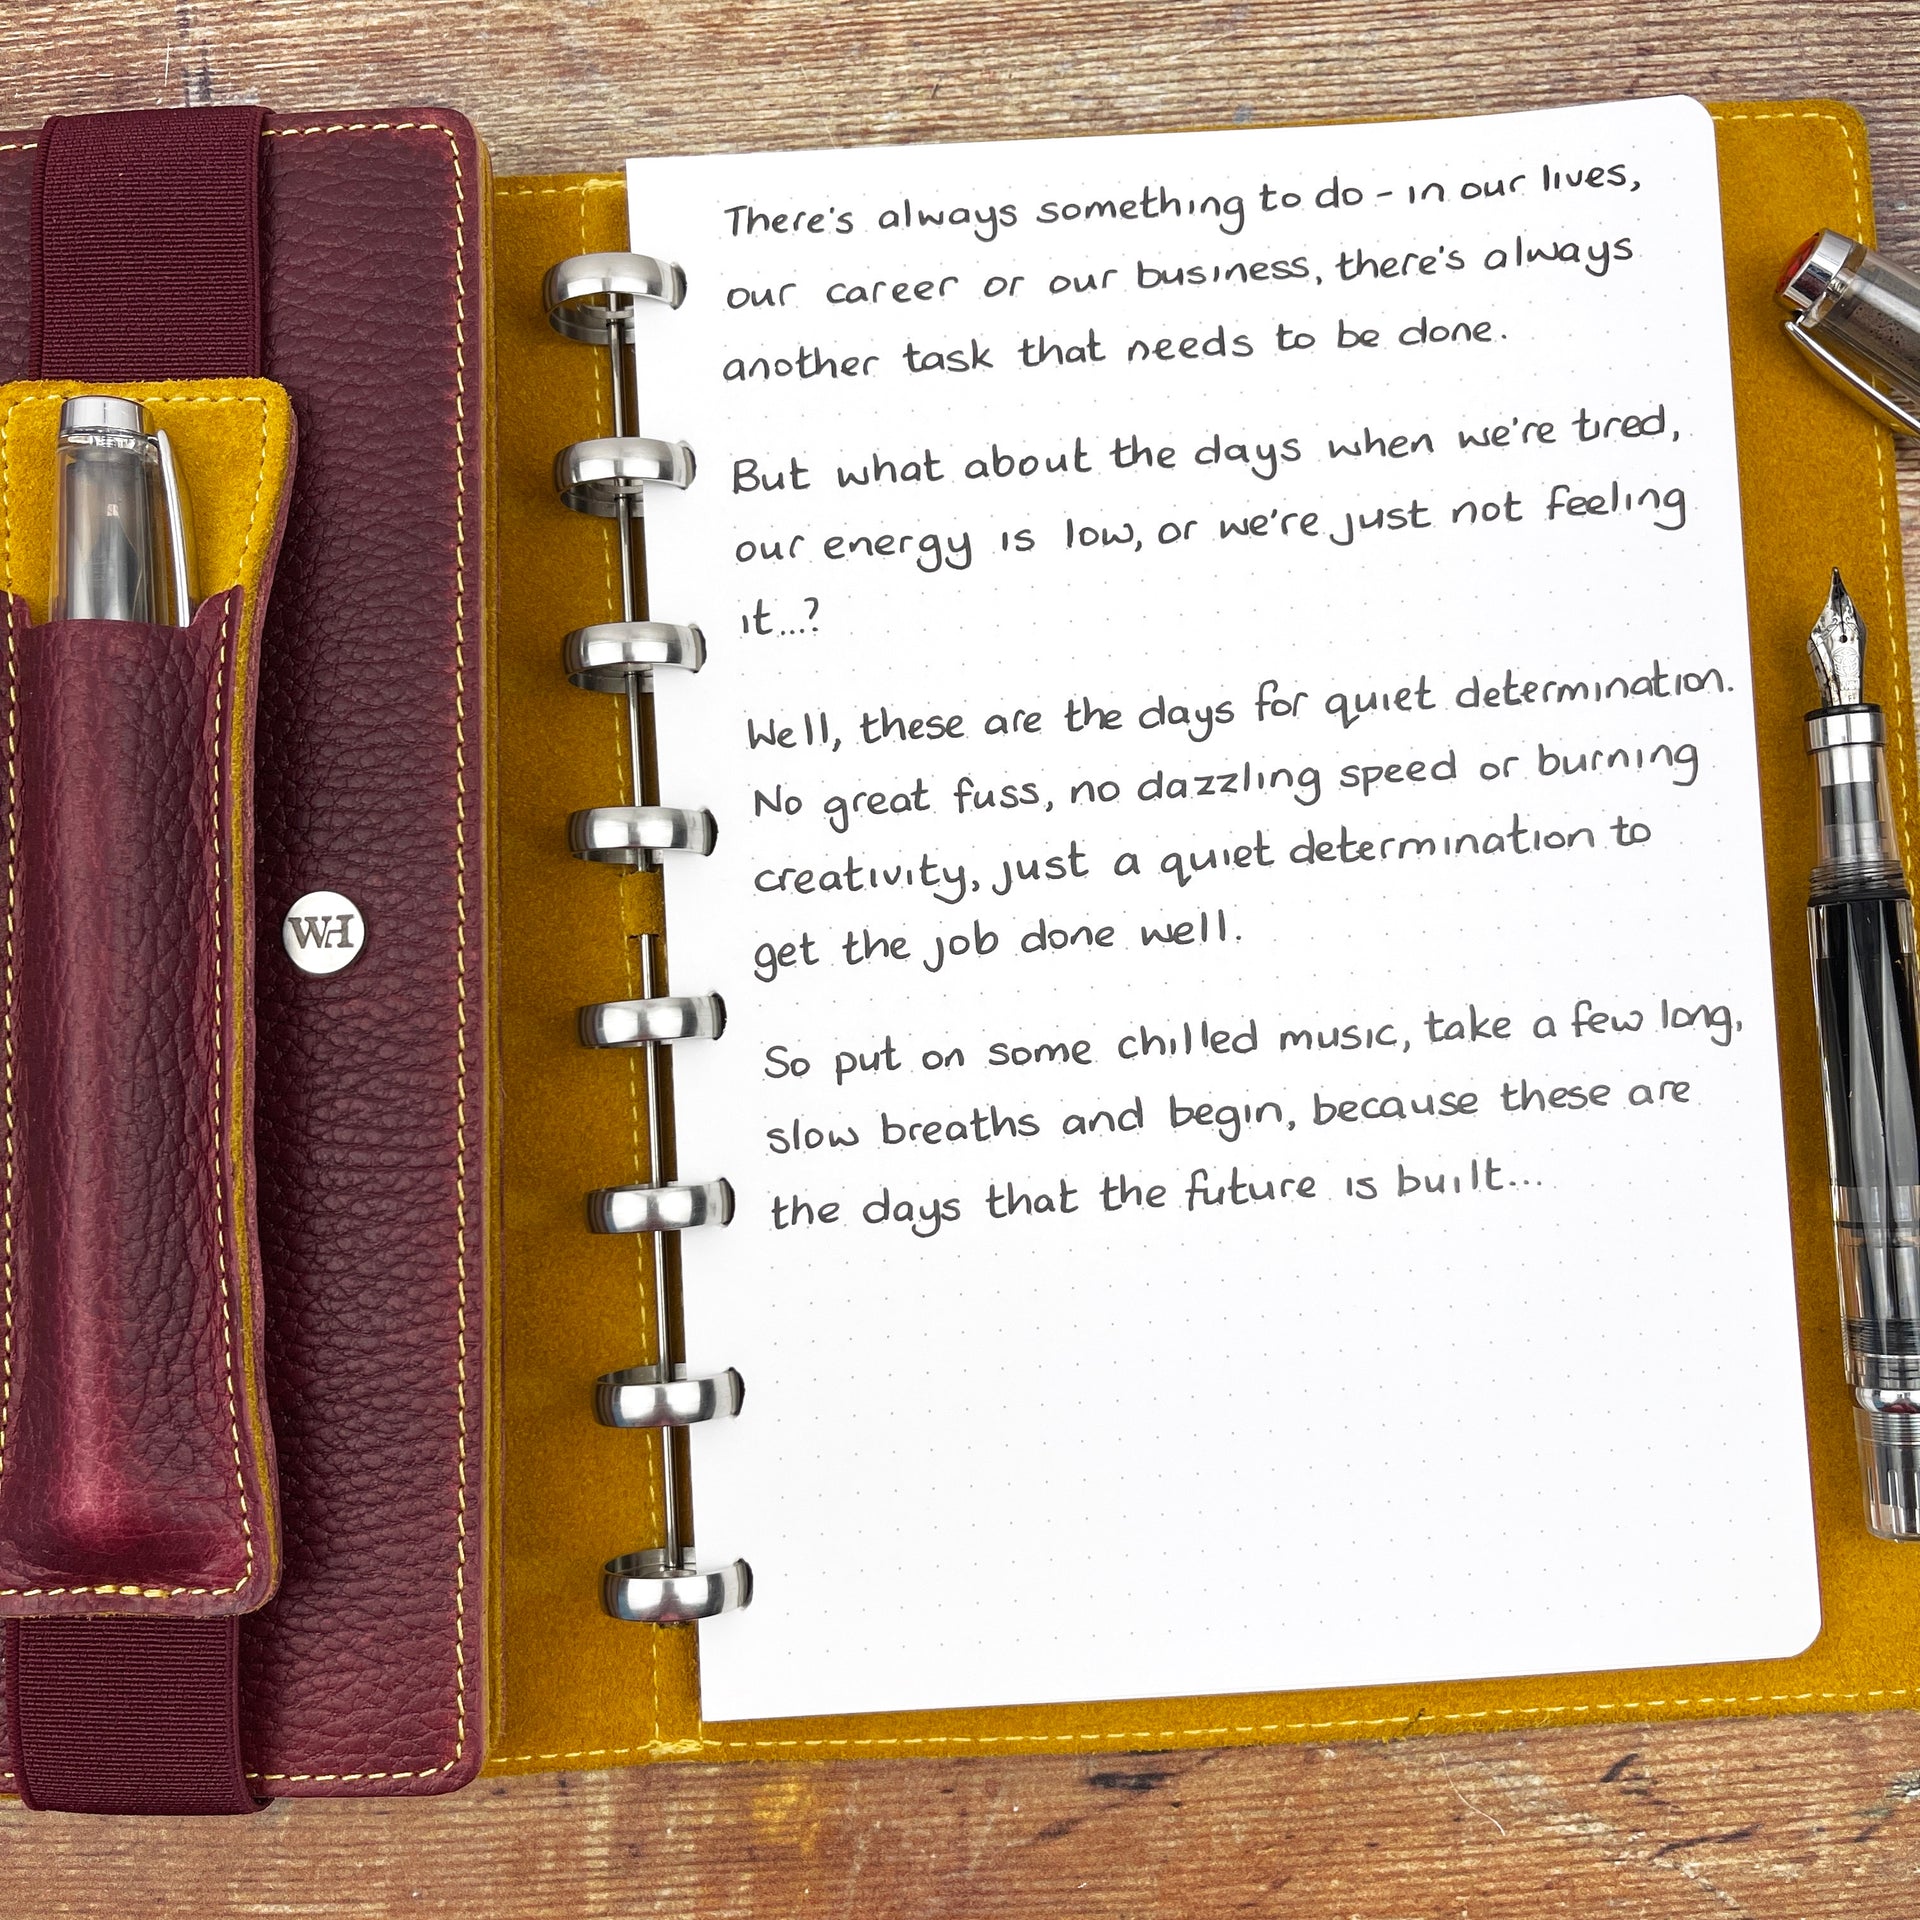 WH
There's always something to do - in our lives,
our career or our business, there's always
another task that needs to be done.
But what about the days when we're tired,
our energy is low, or we're just not feeling
it...?
Well, these are the days for quiet determination.
No great fuss, no dazzling speed or burning
creativity, just a quiet determination to
get the job done well.
So put on some chilled music, take a few long,
slow breaths and begin, because these are
the days that the future is built...